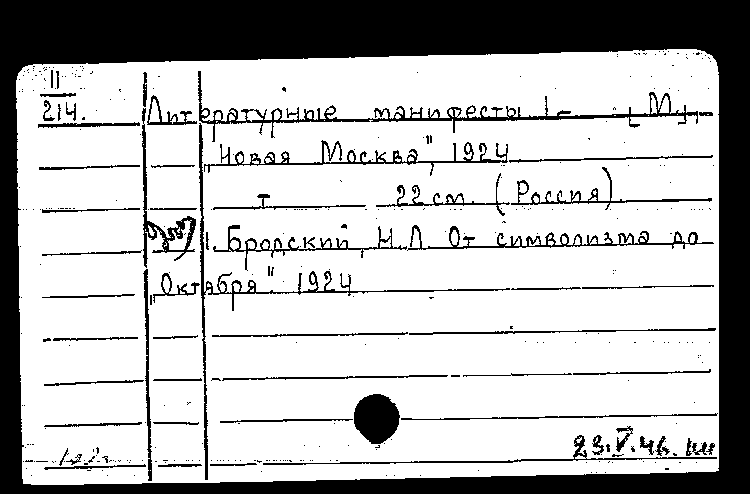 II
214.
Литературные манифесты 1- [М.],
"Новая Москва", 1924
т 22 см. (Россия).
1. Бродский, Н.Л. От символизма до
"Октября". 1924
23.V.46.